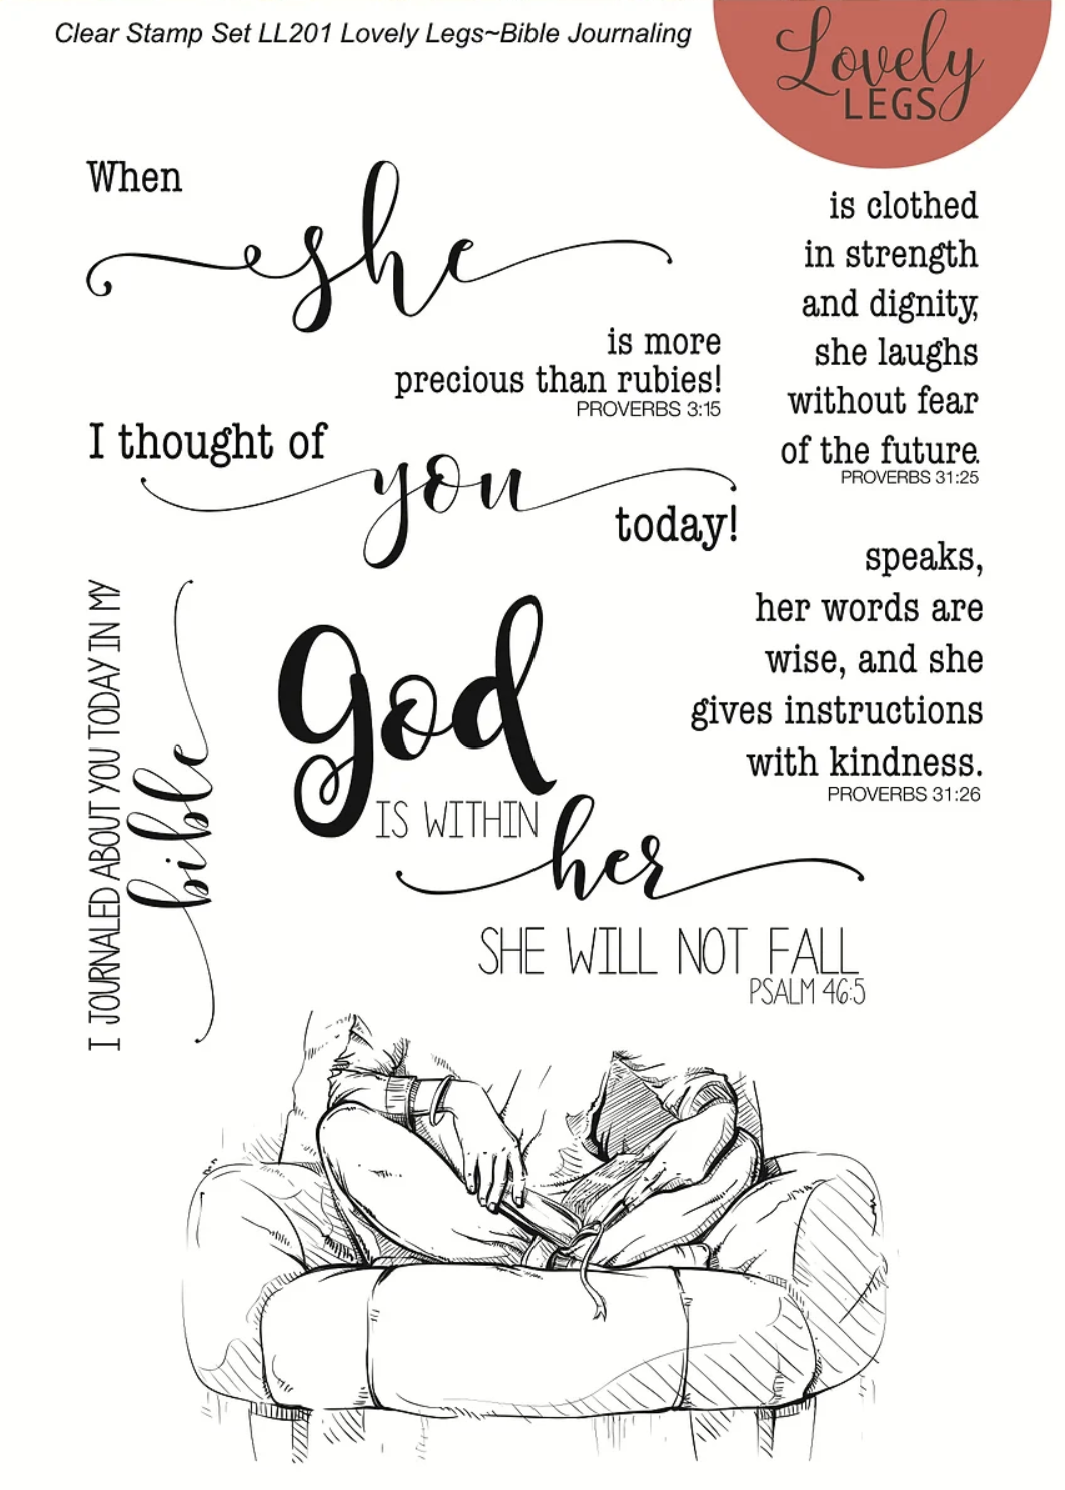 Clear Stamp Set LL201 Lovely Legs~Bible Journaling
Lovely
LEGS
When
she
is more
precious than rubies!
PROVERBS 3:15
is clothed
in strength
and dignity,
she laughs
without fear
of the future.
PROVERBS 31:25
I thought of
you
today!
speaks,
her words are
wise, and she
gives instructions
with kindness.
PROVERBS 31:26
I JOURNALED ABOUT YOU TODAY IN MY
bible
god
IS WITHIN
her
SHE WILL NOT FALL
PSALM 46:5